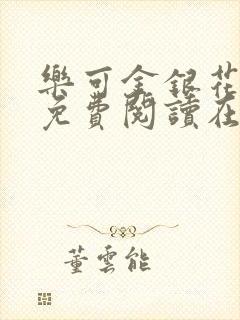 樂可金銀花
免費閱讀在
董雲能